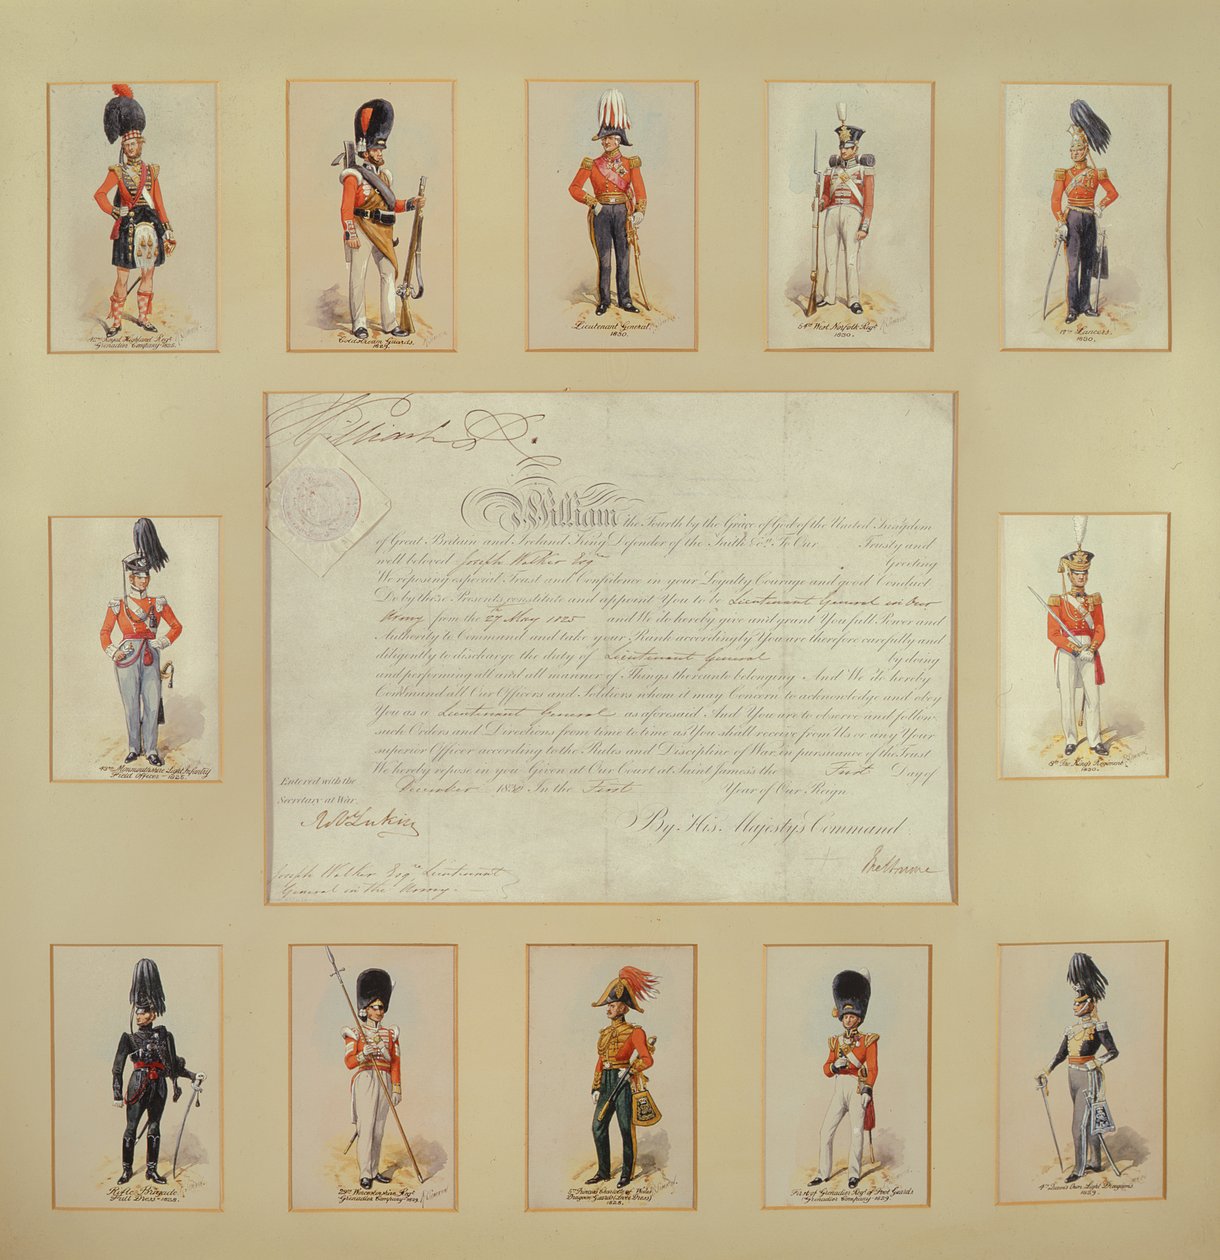 42nd Royal Highland Regt
Grenadier Company 1825.
Coldstream Guards.
Lieutenant General.
1830.
54th West Norfolk Regt
1830.
17th Lancers.
1830.
William R.
William the Fourth by the Grace of God of the United Kingdom
of Great Britain and Ireland King Defender of the Faith &c. To Our Trusty and
well beloved Joseph Walker Esqre Greeting
We reposing especial Trust and Confidence in your Loyalty Courage and good Conduct
Do by these Presents constitute and appoint You to be Lieutenant General in Our
Army from the 27th May 1825 and We do hereby give and grant You full Power and
Authority to Command and take your Rank accordingly You are therefore carefully and
diligently to discharge the duty of Lieutenant General by doing
and performing all and all manner of Things thereunto belonging And We do hereby
Command all Our Officers and Soldiers whom it may Concern to acknowledge and obey
You as a Lieutenant General as aforesaid And You are to observe and follow
such Orders and Directions from time to time as You shall receive from Us or any Your
superior Officer according to the Rules and Discipline of War in pursuance of the Trust
We hereby repose in you Given at Our Court at Saint James's the First Day of
December 1830 In the First Year of Our Reign
Entered with the
Secretary at War
By His Majesty's Command
Melbourne
Joseph Walker Esqre Lieutenant
General in the Army
43rd Monmouthshire Light Infantry
Field Officer 1825.
8th The King's Regiment
1830.
Rifle Brigade
Full Dress 1828.
29th Worcestershire Regt
Grenadier Company 1829
5th Princess Charlotte of Wales
Dragoon Guards (Levee Dress)
1828.
First, or Grenadier Regt of Foot Guards
Grenadier Company 1829
4th Queen's Own Light Dragoons
1829.